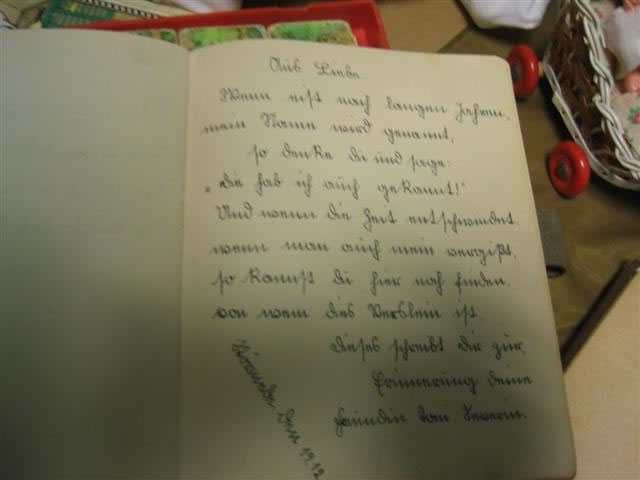 Aus Liebe.
Wenn einst nach langen Jahren,
mein Name wird genannt,
so denke du und sage:
„Die hab ich auch gekannt!"
Und wenn die Zeit entschwindet.
wenn man auch mein vergißt,
so kannst du hier noch finden.
von wem dies Verslein ist.
Dieses schreibt dir zur,
Erinnerung deine
Severin.
den 19.12.